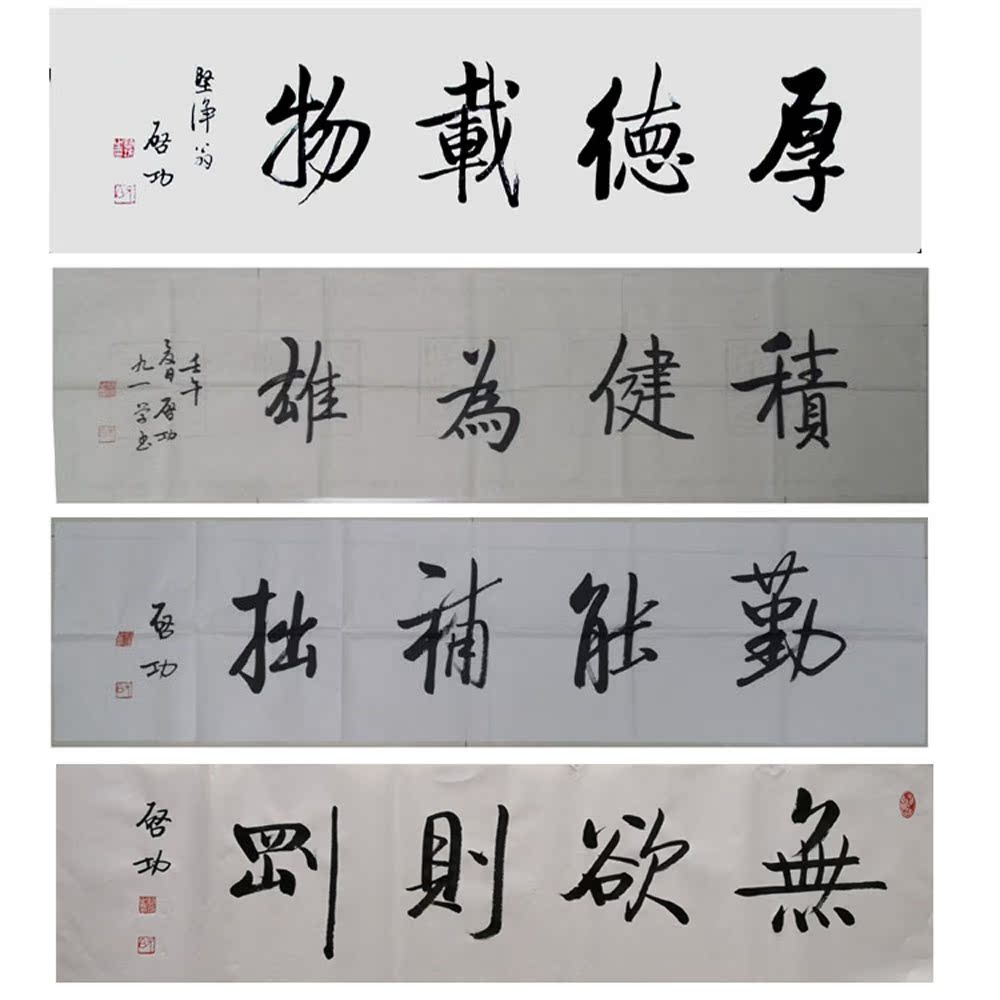 厚德載物
堅淨翁
啓功
積健為雄
壬午
夏日啓功
九一学书
勤能補拙
啓功
無欲則剛
啓功